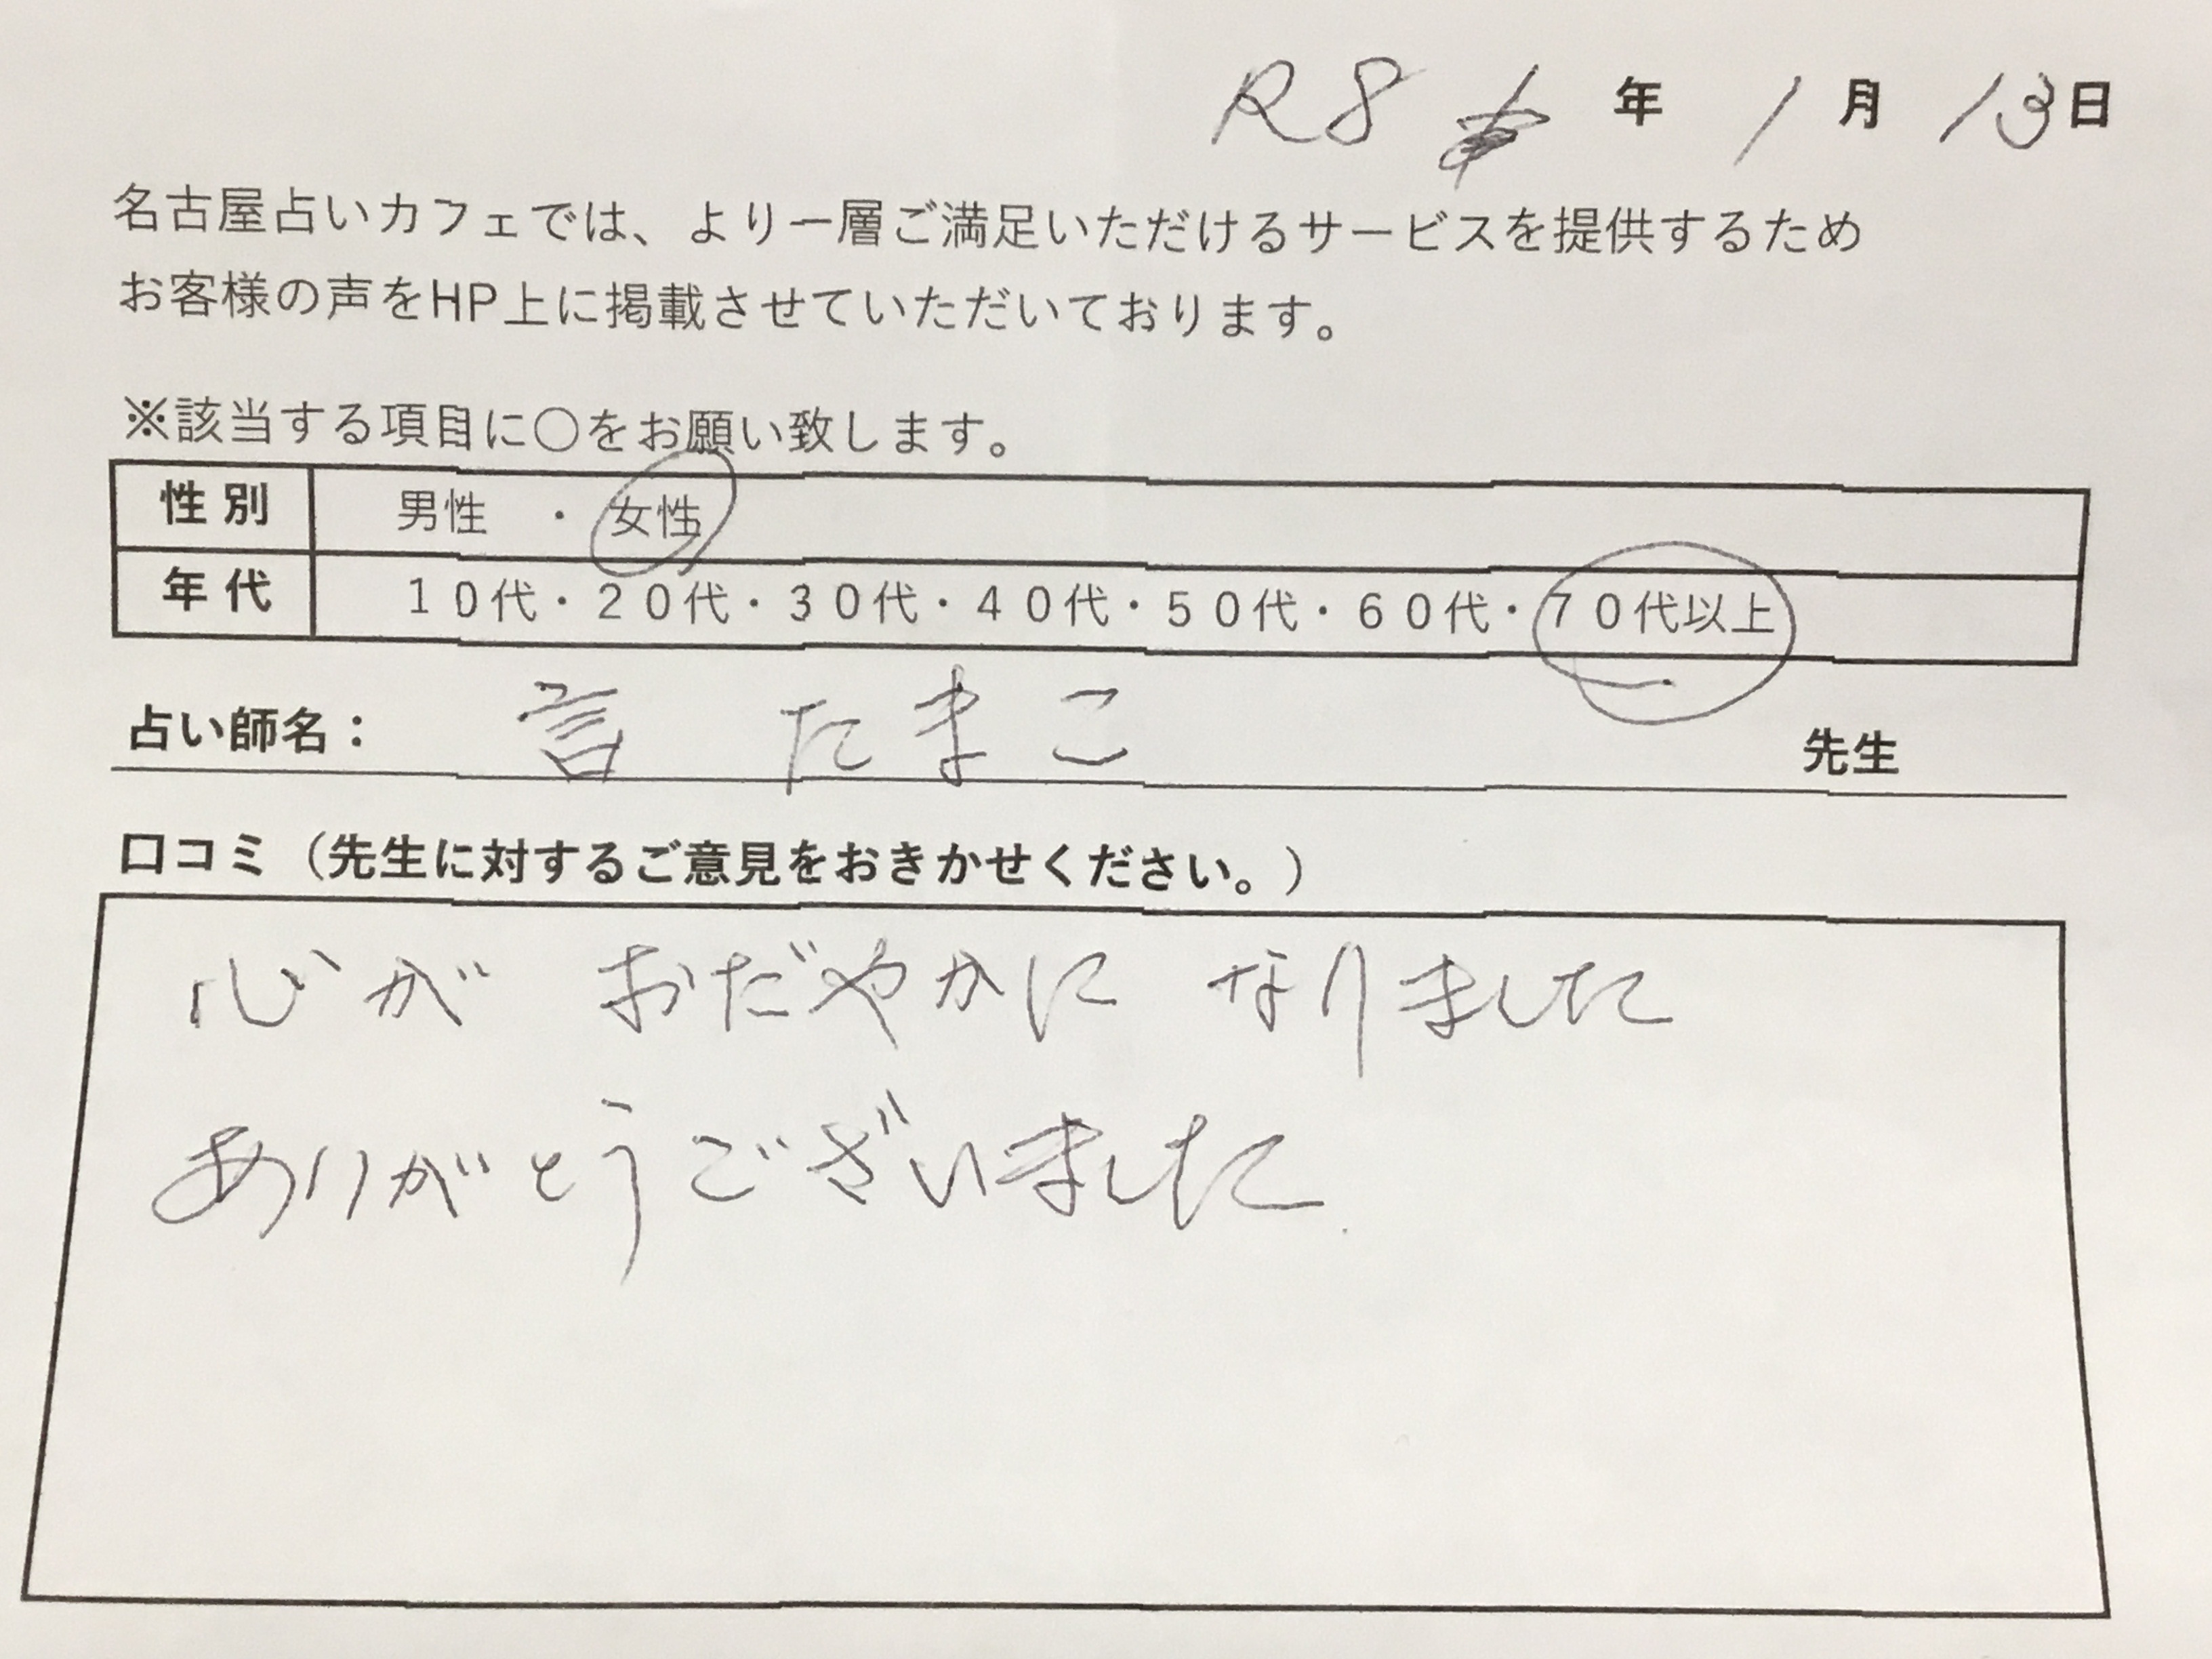 R8 年 1月 13日
名古屋占いカフェでは、より一層ご満足いただけるサービスを提供するため
お客様の声をHP上に掲載させていただいております。
※該当する項目に〇をお願い致します。
性別 男性 ・ 女性
年代 10代・20代・30代・40代・50代・60代・70代以上
占い師名： 言 たまこ 先生
口コミ（先生に対するご意見をおきかせください。）
心が おだやかに なりました
ありがとうございました.